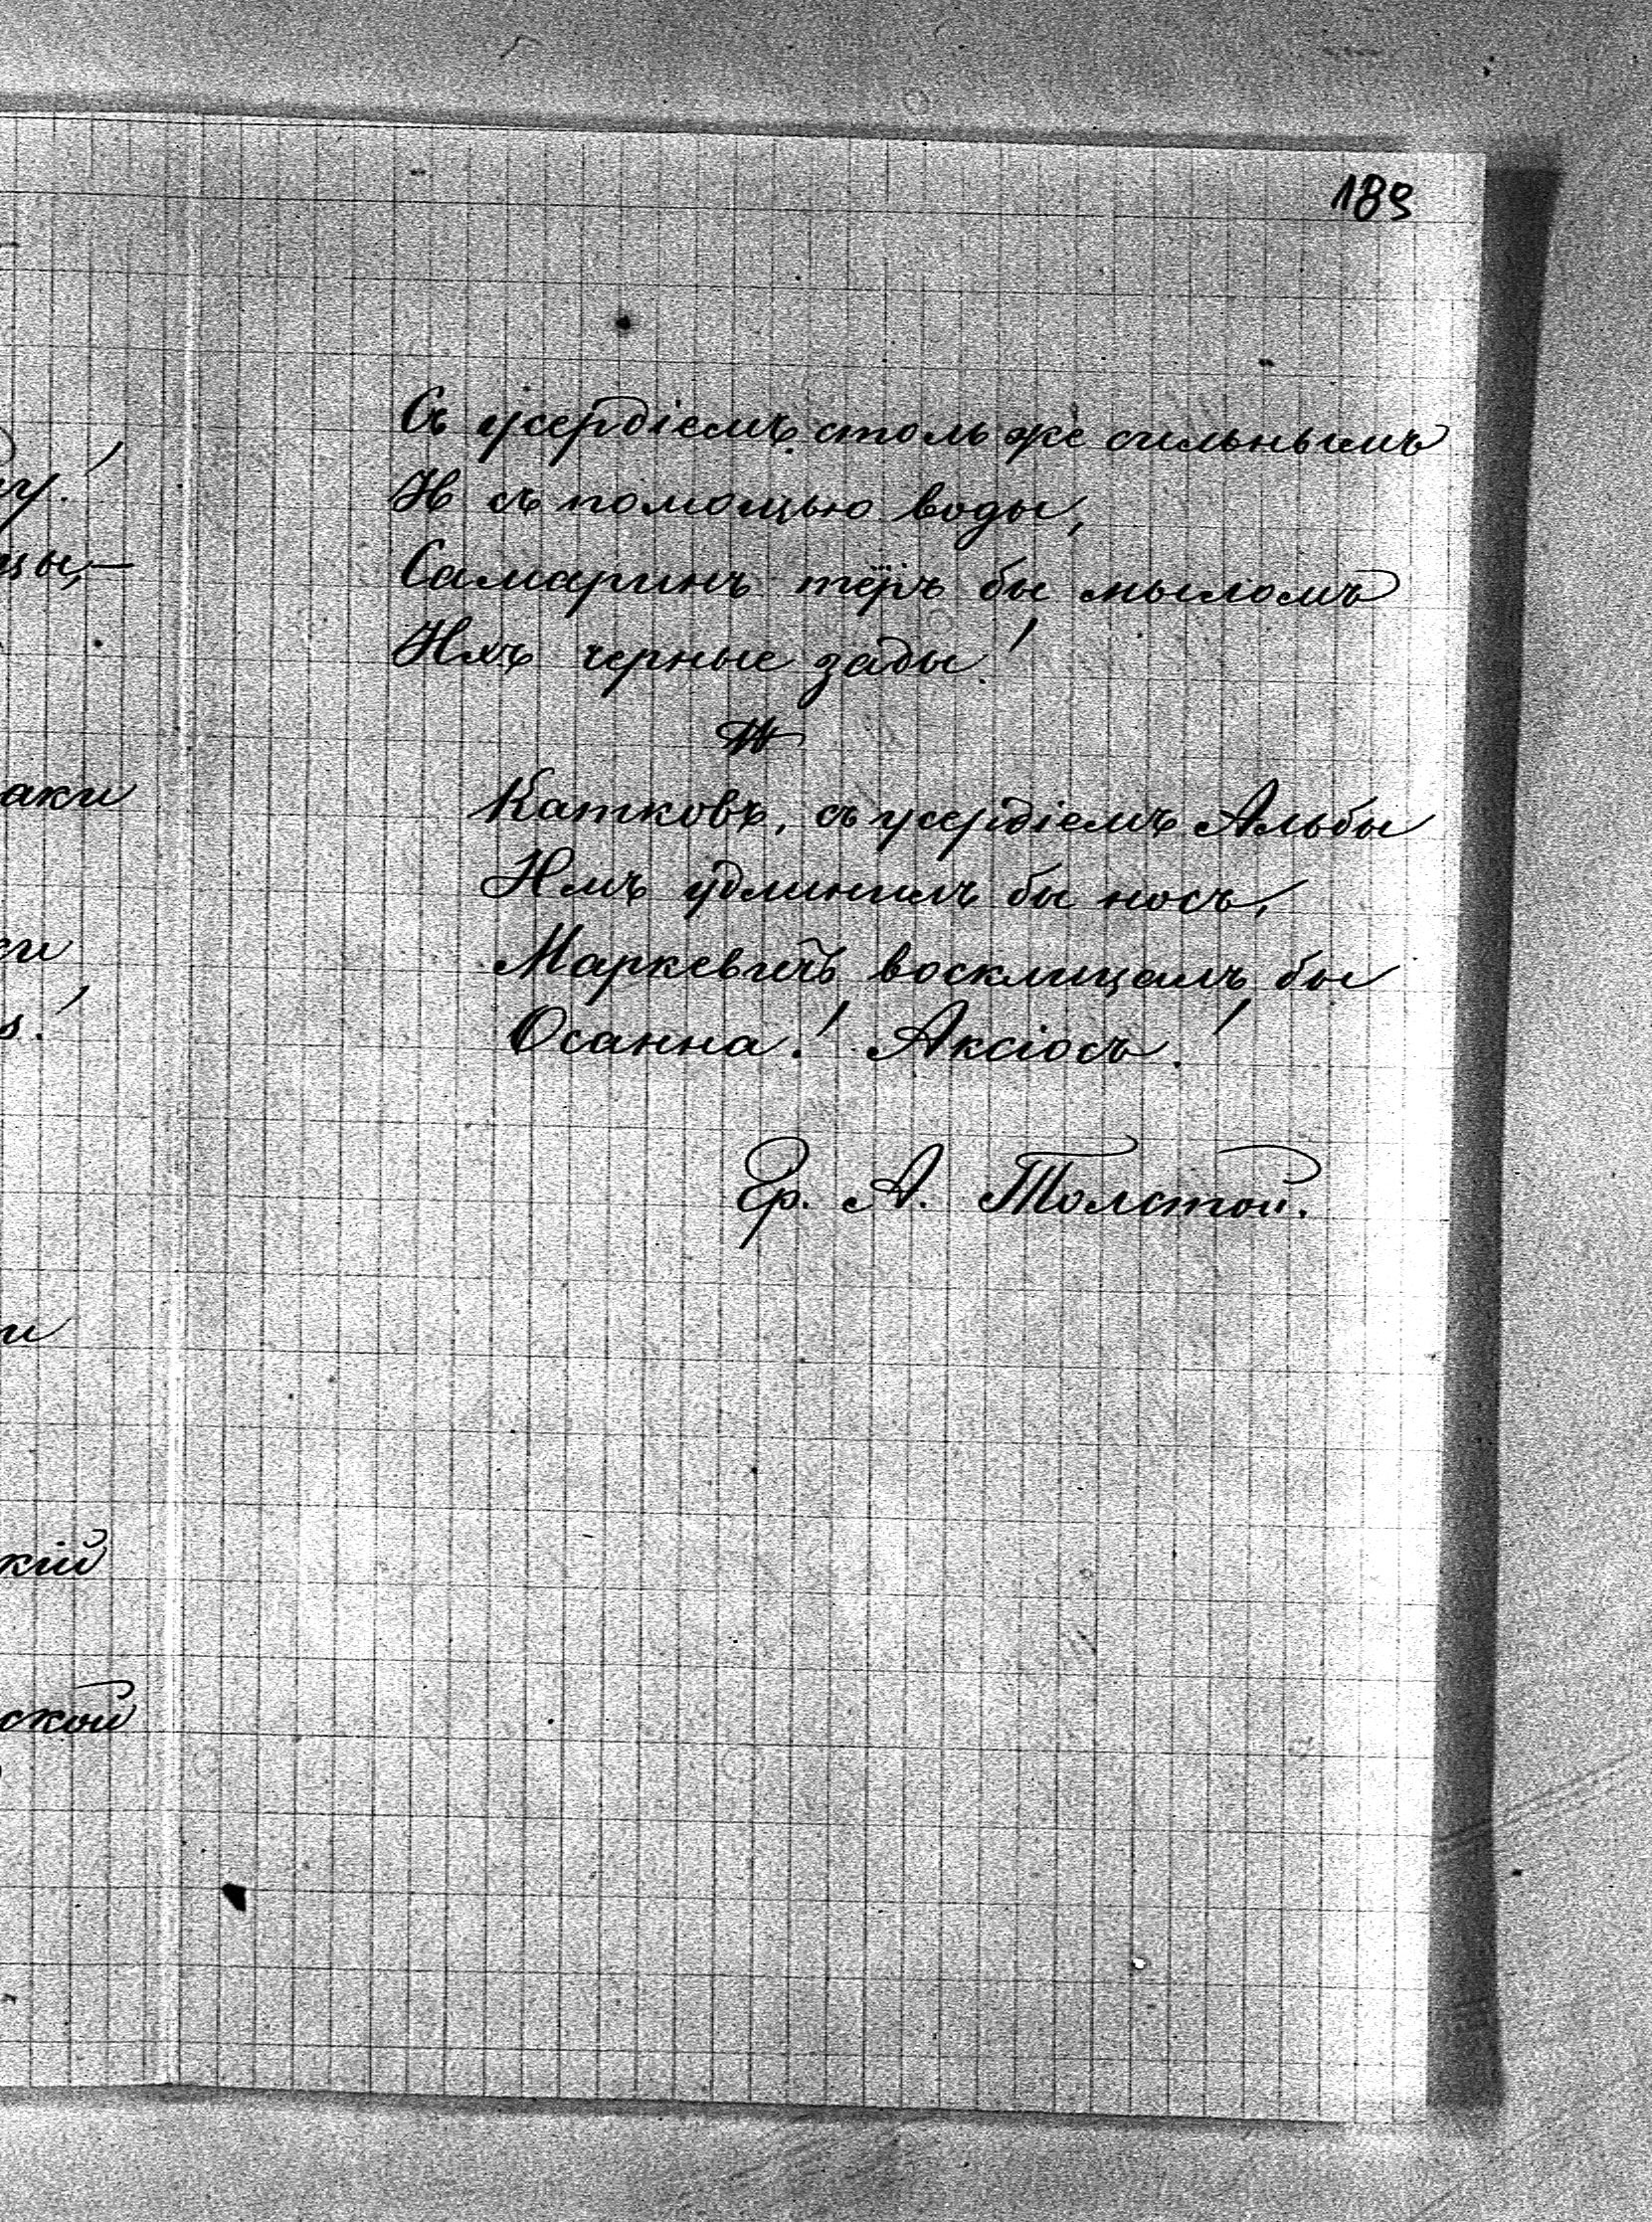 183
Съ усердіемъ столь же сильнымъ
И съ помощью воды,
Самаринъ тёръ бы мыломъ
Ихъ черные зады!
Катковъ, съ усердіемъ Альбы
Имъ удлинилъ бы носъ,
Маркевичъ восклицалъ бы
Осанна! Аксіосъ!
Гр. А. Толстой.